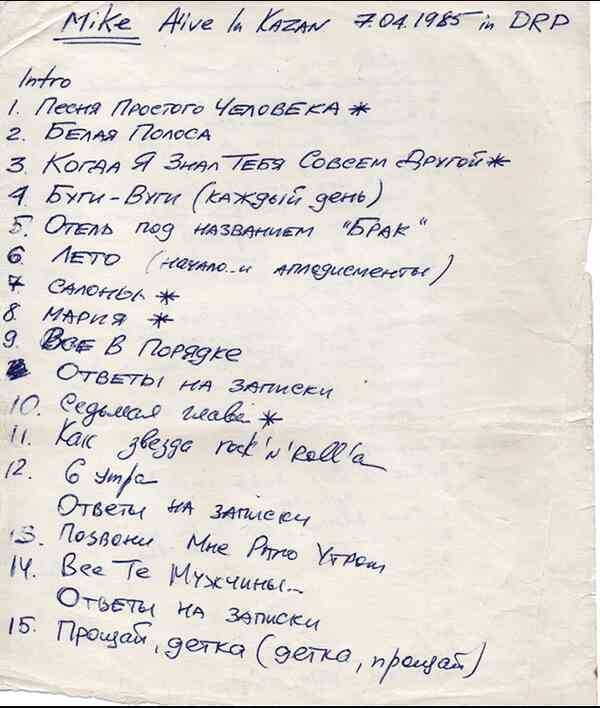 Mike Alive In KAZAN 7.04.1985 in DRP
Intro
1. Песня Простого Человека *
2. Белая Полоса
3. Когда Я Знал Тебя Совсем Другой *
4. Буги-Вуги (каждый день)
5. Отель под названием "Брак"
6. Лето (начало..и апплодисменты)
7. Салоны *
8. Мария *
9. Все в Порядке
Ответы на записки
10. Седьмая глава *
11. Как звезда rock'n'Roll'а
12. 6 утра
Ответы на записки
13. Позвони Мне Рано Утром
14. Все Те Мужчины...
Ответы на записки
15. Прощай, детка (детка, прощай)